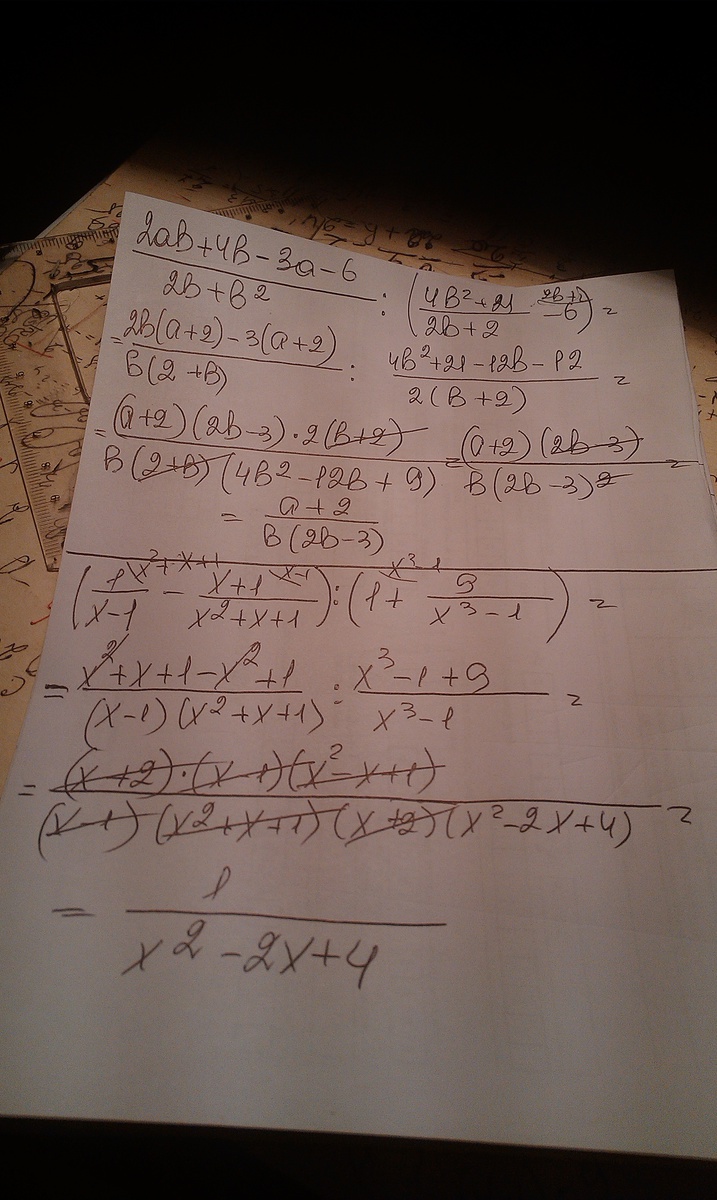 2ab+4b-3a-6 / 2b+b² : (4b²+21 / 2b+2 -6 \ 2b+2) =
= 2b(a+2)-3(a+2) / b(2+b) : 4b²+21-12b-12 / 2(b+2) =
= (a+2)(2b-3)·2(b+2) / b(2+b)(4b²-12b+9) = (a+2)(2b-3) / b(2b-3)² =
= a+2 / b(2b-3)
(1 \ x²+x+1 / x-1 - x+1 \ x-1 / x²+x+1) : (1 \ x³-1 + 9 / x³-1) =
= x²+x+1-x²+1 / (x-1)(x²+x+1) : x³-1+9 / x³-1 =
= (x+2)·(x-1)(x²-x+1) / (x-1)(x²+x+1)(x+2)(x²-2x+4) =
= 1 / x²-2x+4